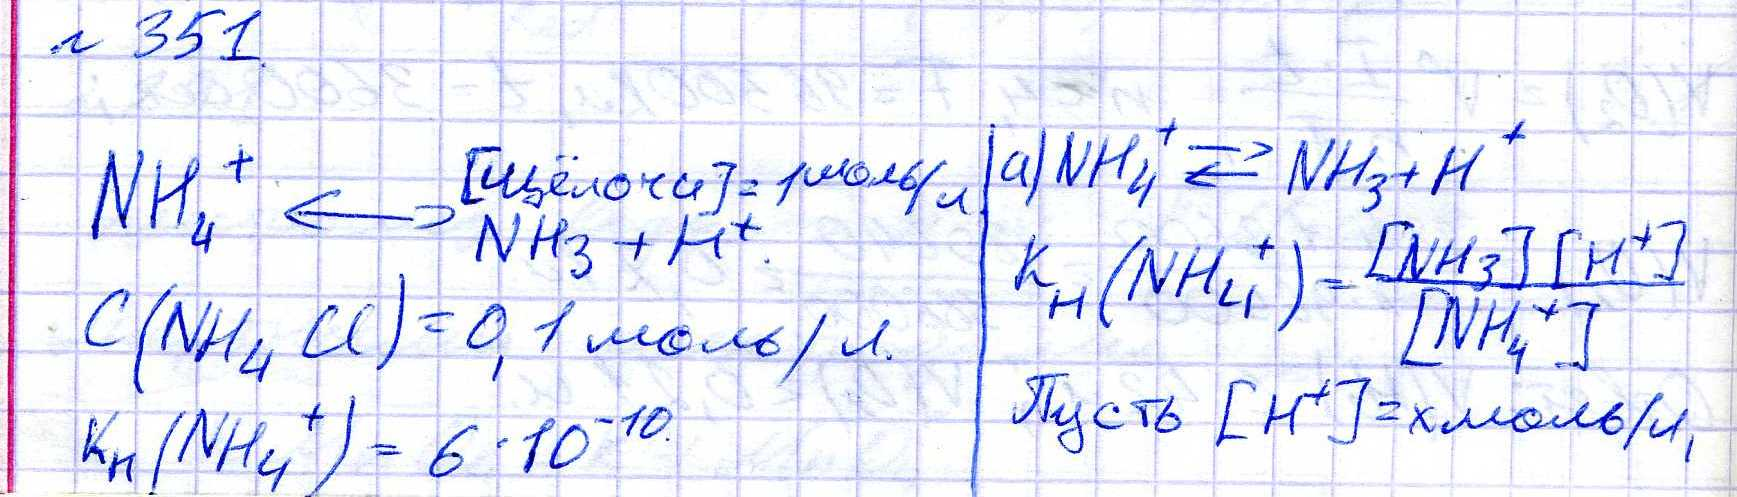 № 351.
NH₄⁺ ⟷ [щёлочи] = 1 моль/л
NH₃ + H⁺.
C(NH₄Cl) = 0,1 моль/л.
Kн(NH₄⁺) = 6·10⁻¹⁰.
а) NH₄⁺ ⇄ NH₃ + H⁺
Kн(NH₄⁺) = [NH₃][H⁺] / [NH₄⁺]
Пусть [H⁺] = x моль/л,